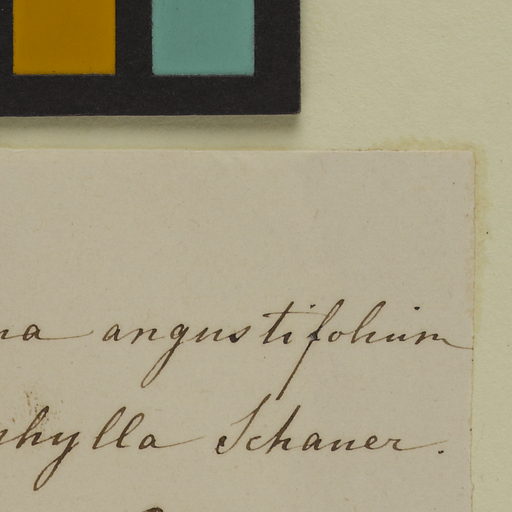 na angustifolium
phylla Schauer.